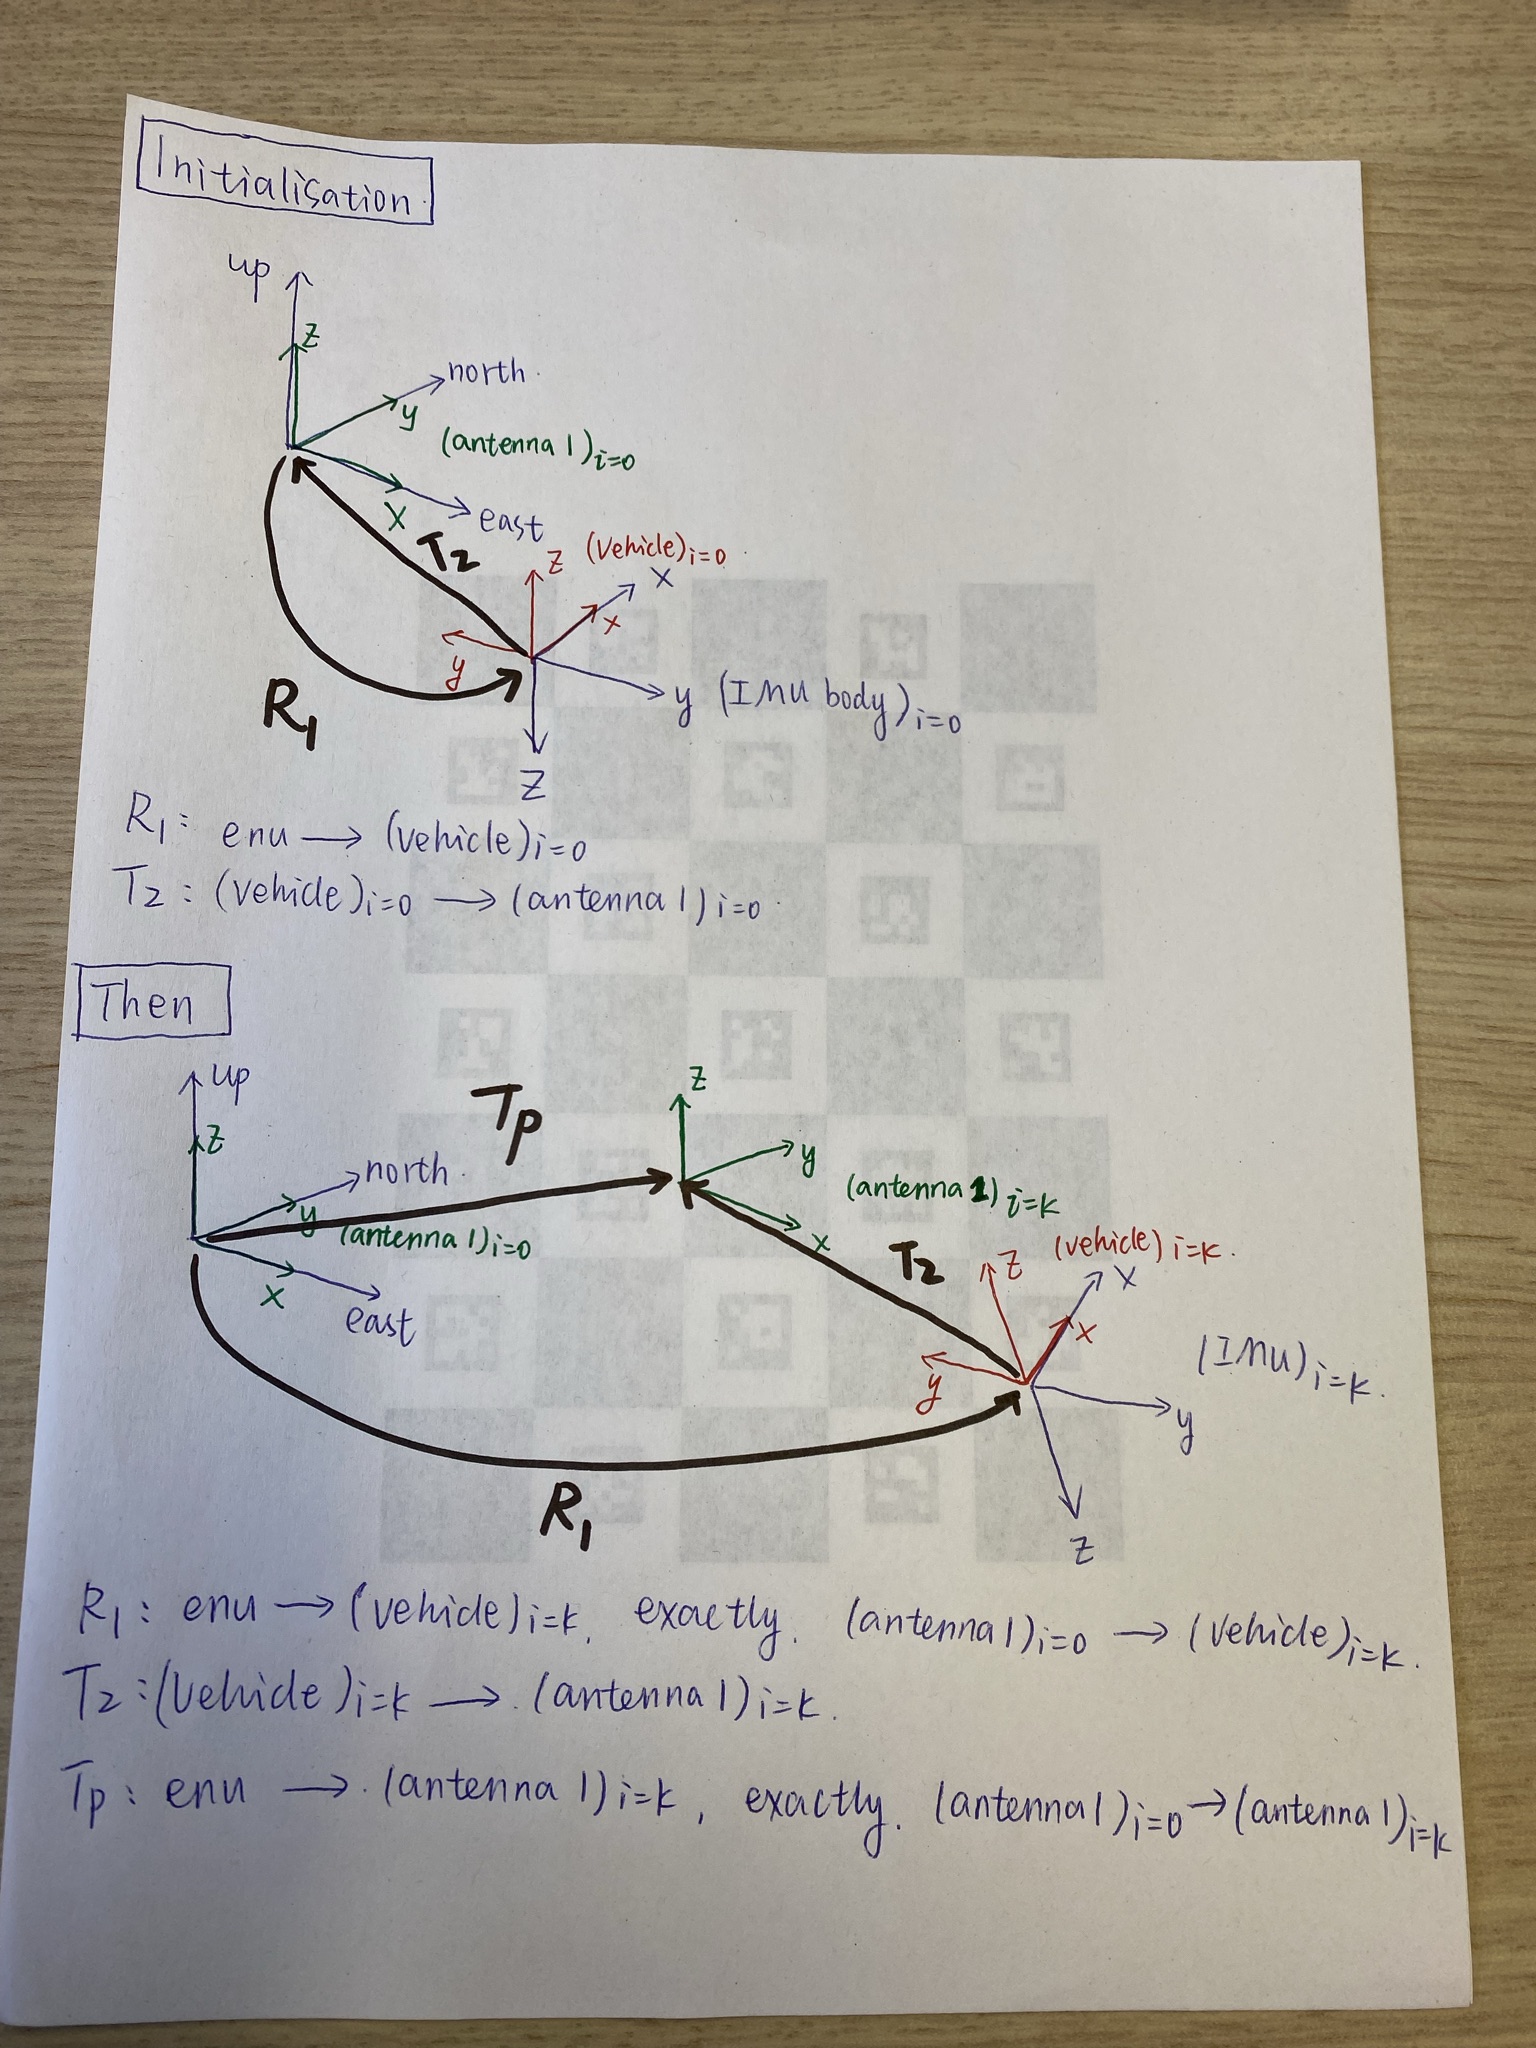 Initialisation.
up
z
north.
y
(antenna 1)i=0
x
east
T2
z (vehicle)i=0
x
x
y
R1
y (IMU body)i=0
z
R1: enu → (vehicle)i=0
T2: (vehicle)i=0 → (antenna 1)i=0.
Then
up
Tp
z
z
north.
y
y
(antenna 1)i=0
(antenna 1)i=k
x
x
east
T2
z (vehicle)i=k.
x
x
y
(IMU)i=k.
y
R1
z
R1: enu → (vehicle)i=k, exactly. (antenna 1)i=0 → (vehicle)i=k.
T2: (vehicle)i=k → (antenna 1)i=k.
Tp: enu → (antenna 1)i=k, exactly. (antenna 1)i=0 → (antenna 1)i=k